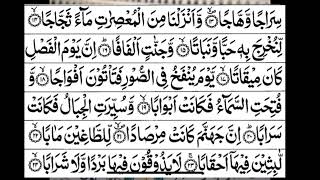 سِرَاجًا وَّهَّاجًا ۝۱۳ وَّاَنْزَلْنَا مِنَ الْمُعْصِرٰتِ مَآءً ثَجَّاجًا ۝۱۴
لِّنُخْرِجَ بِهٖ حَبًّا وَّنَبَاتًا ۝۱۵ وَّجَنّٰتٍ اَلْفَافًا ۝۱۶ اِنَّ يَوْمَ الْفَصْلِ
كَانَ مِيْقَاتًا ۝۱۷ يَّوْمَ يُنْفَخُ فِى الصُّوْرِ فَتَاْتُوْنَ اَفْوَاجًا ۝۱۸ وَّ
فُتِحَتِ السَّمَآءُ فَكَانَتْ اَبْوَابًا ۝۱۹ وَّسُيِّرَتِ الْجِبَالُ فَكَانَتْ
سَرَابًا ۝۲۰ اِنَّ جَهَنَّمَ كَانَتْ مِرْصَادًا ۝۲۱ لِّلطَّاغِيْنَ مَاٰبًا ۝۲۲
لّٰبِثِيْنَ فِيْهَآ اَحْقَابًا ۝۲۳ لَا يَذُوْقُوْنَ فِيْهَا بَرْدًا وَّلَا شَرَابًا ۝۲۴